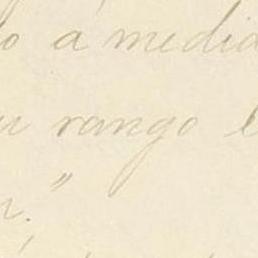 o a medid
rango
."